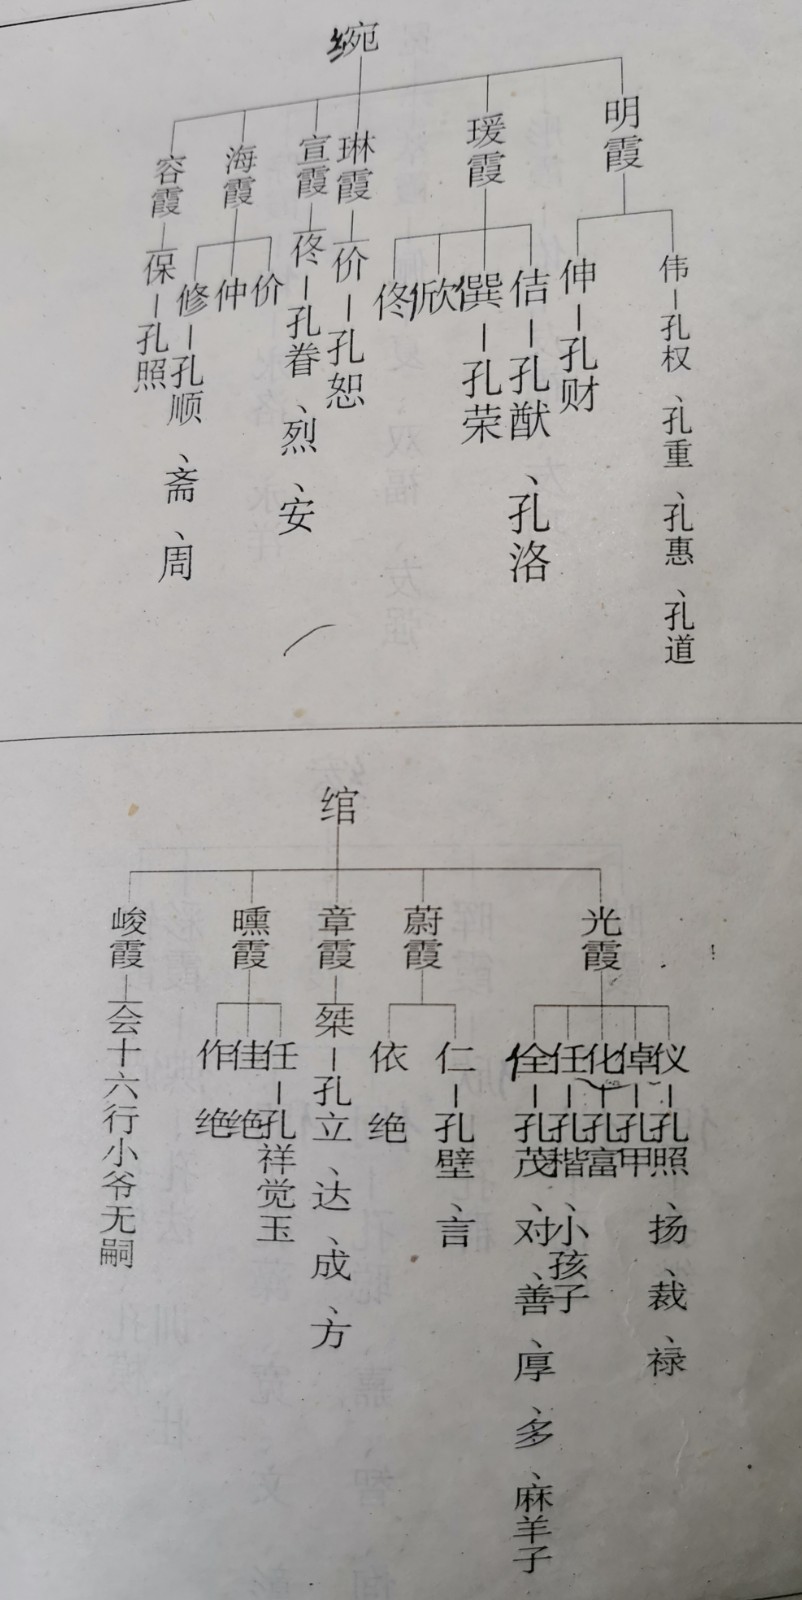 綩
明霞
伟—孔权、孔重、孔惠、孔道
伸—孔财
瑗霞
佶—孔猷、孔洛
僎—孔荣
佟
琳霞
价—孔恕
宣霞
佟—孔眷、烈、安
海霞
价
仲
修—孔顺、斋、周
容霞
保—孔照
绾
光霞
仪—孔照、扬、裁、禄
倬—孔甲
化—孔富
任—孔揩、小孩子
佺—孔茂、对、善、厚、多、麻羊子
蔚霞
仁—孔壁、言
依 绝
章霞
桀—孔立、达、成、方
曛霞
任—孔祥觉玉
佳 绝
作 绝
峻霞
会十六行小爷无嗣